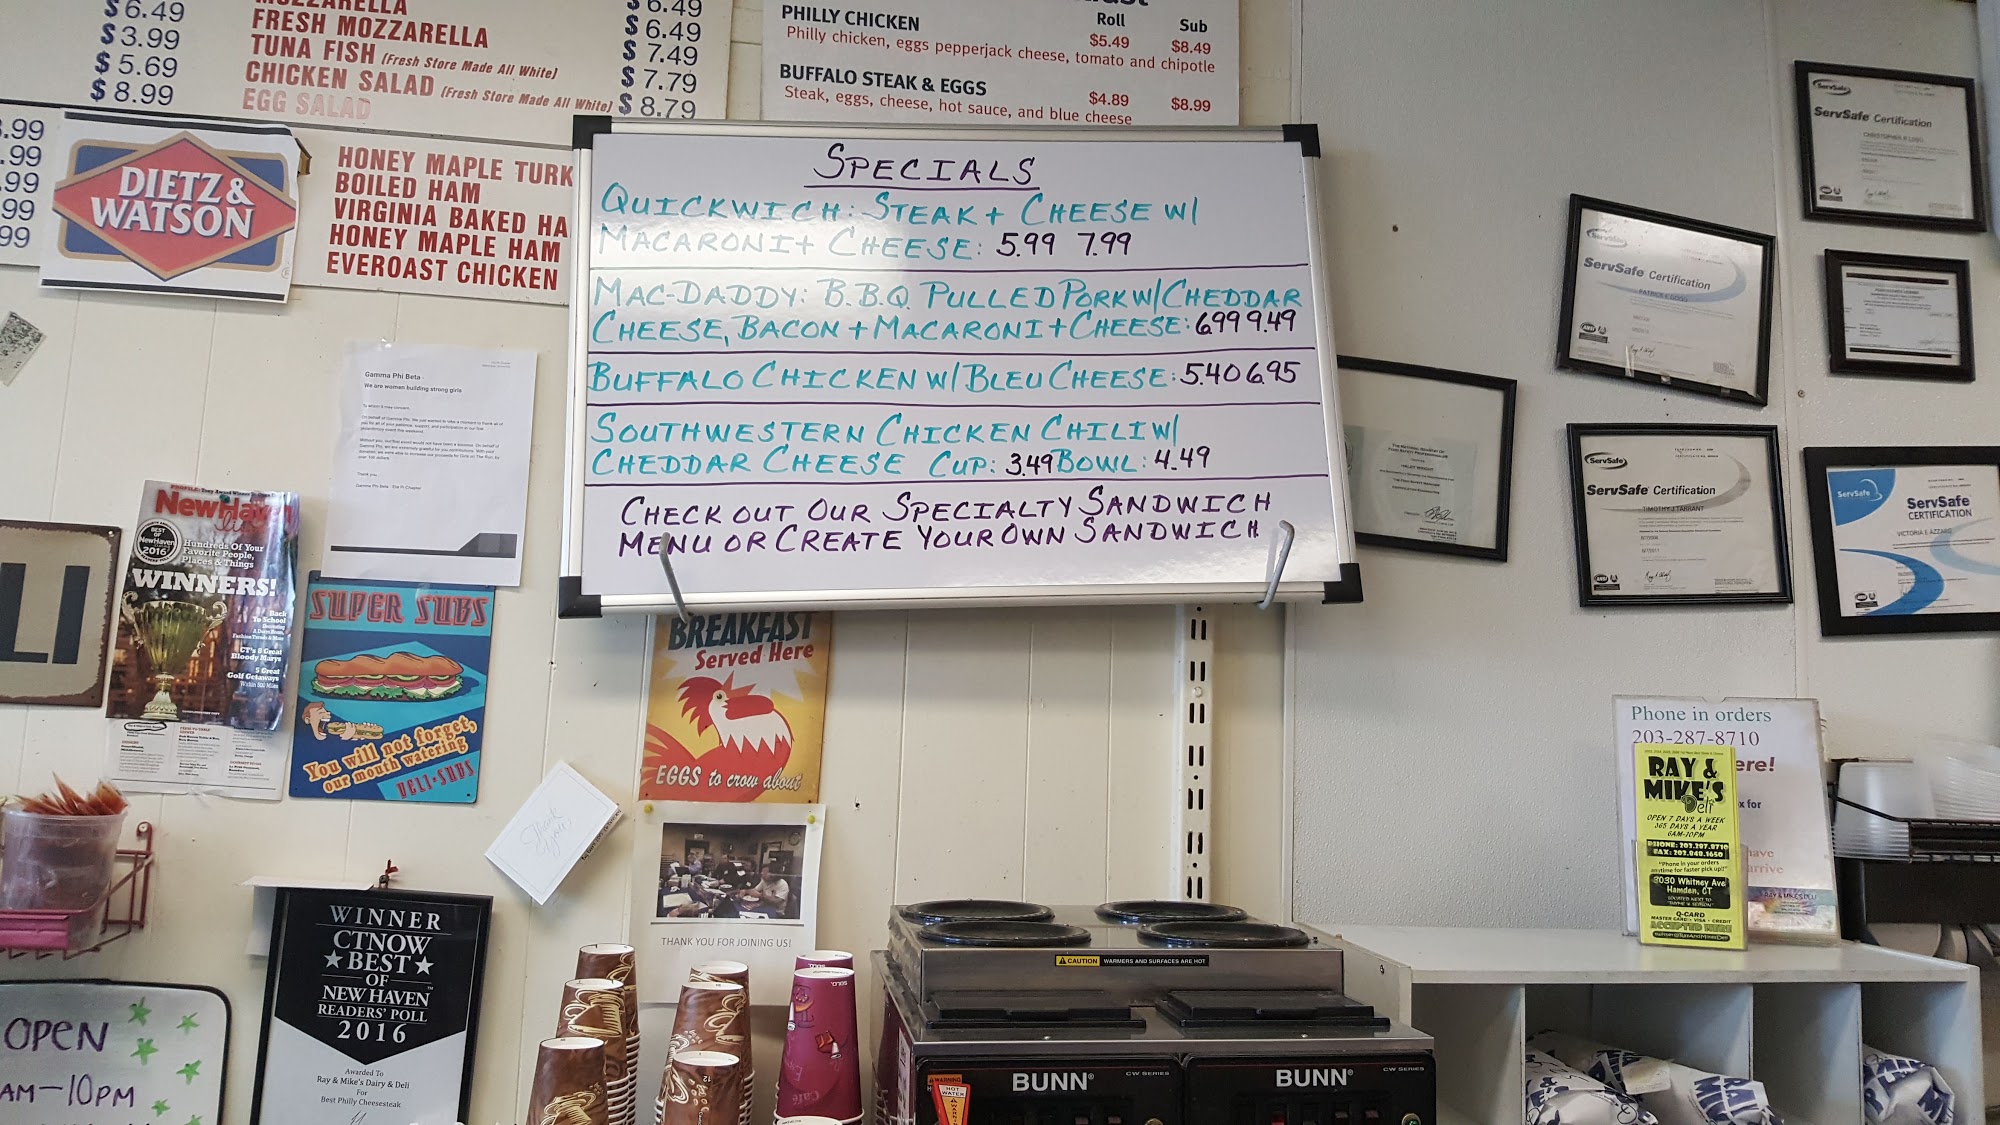 $6.49
$3.99
$5.69
$8.99
MOZZARELLA
FRESH MOZZARELLA
TUNA FISH (Fresh Store Made All White)
CHICKEN SALAD (Fresh Store Made All White)
EGG SALAD
$6.49
$6.49
$7.49
$7.79
$8.79
Roll Sub
PHILLY CHICKEN $5.49 $8.49
Philly chicken, eggs pepperjack cheese, tomato and chipotle
BUFFALO STEAK & EGGS $4.89 $8.99
Steak, eggs, cheese, hot sauce, and blue cheese
.99
.99
.99
99
DIETZ &
WATSON
HONEY MAPLE TURK
BOILED HAM
VIRGINIA BAKED HA
HONEY MAPLE HAM
EVEROAST CHICKEN
SPECIALS
QUICKWICH: STEAK + CHEESE W/
MACARONI + CHEESE: 5.99 7.99
MAC-DADDY: B.B.Q. PULLED PORK W/ CHEDDAR
CHEESE, BACON + MACARONI + CHEESE: 6.99 9.49
BUFFALO CHICKEN W/ BLEU CHEESE: 5.40 6.95
SOUTHWESTERN CHICKEN CHILI W/
CHEDDAR CHEESE CUP: 3.49 BOWL: 4.49
CHECK OUT OUR SPECIALTY SANDWICH
MENU OR CREATE YOUR OWN SANDWICH
Gamma Phi Beta
We are women building strong girls
LI
New Haven
BEST OF
New Haven
2016
Hundreds Of Your
Favorite People,
Places & Things
WINNERS!
Back
To School
CT's 8 Great
Bloody Marys
5 Great
Golf Getaways
SUPER SUBS
You will not forget,
our mouth watering
DELI-SUBS
BREAKFAST
Served Here
EGGS to crow about
Thank
you
THANK YOU FOR JOINING US!
WINNER
CTNOW
BEST
OF
NEW HAVEN
READERS' POLL
2016
Awarded To
Ray & Mike's Dairy & Deli
For
Best Philly Cheesesteak
OPEN
AM-10PM
CAUTION WARMERS AND SURFACES ARE HOT
BUNN® CW SERIES
BUNN® CW SERIES
WARNING
HOT
WATER
ServSafe
ServSafe Certification
ServSafe
ServSafe Certification
ServSafe
ServSafe Certification
TIMOTHY J TARRANT
ServSafe
ServSafe
CERTIFICATION
VICTORIA E AZZARE
Phone in orders
203-287-8710
ere!
RAY &
MIKE'S
Deli
OPEN 7 DAYS A WEEK
365 DAYS A YEAR
6AM-10PM
PHONE: 203.287.8710
FAX: 203.848.1650
"Phone in your orders
anytime for faster pick up!"
3030 Whitney Ave
Hamden, CT
Q-CARD
MASTER CARD • VISA • CREDIT
ACCEPTED HERE
have
arrive